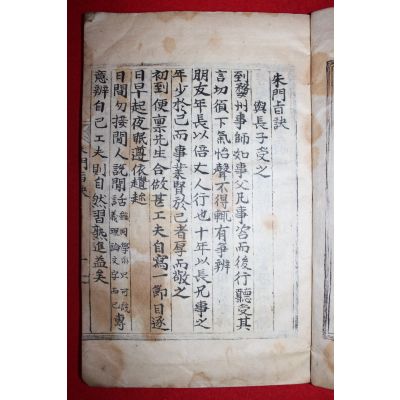 朱門旨訣
與長子受之
到婺州事師如事父凡事咨而後行聽受其
言切須下氣怡聲不得輒有爭辨
朋友年長以倍丈人行也十年以長兄事之
年少於己而事業賢於己者厚而敬之
初到便稟先生合做甚工夫自寫一節目逐
日早起夜眠遵依趲趁
日間勿接閒人說閒話雖同學亦只可說義理論文字而已專
意辨自己工夫則自然習熟進益矣
朱門旨訣